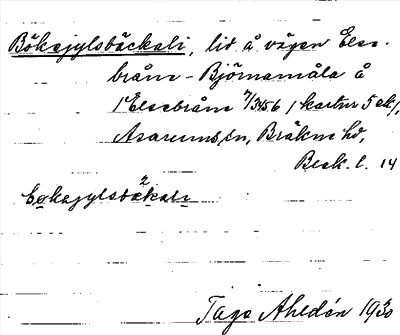 Bökejylsbäckali, lid å vägen Else-
bråne - Björnamåla å
1 Elsebråne 7/3456 / kartur 5 ek /,
Asarums sn, Bräkne hd,
Blek. l. 14
bøkejylsbäkali
2
Tage Ahldén 1930